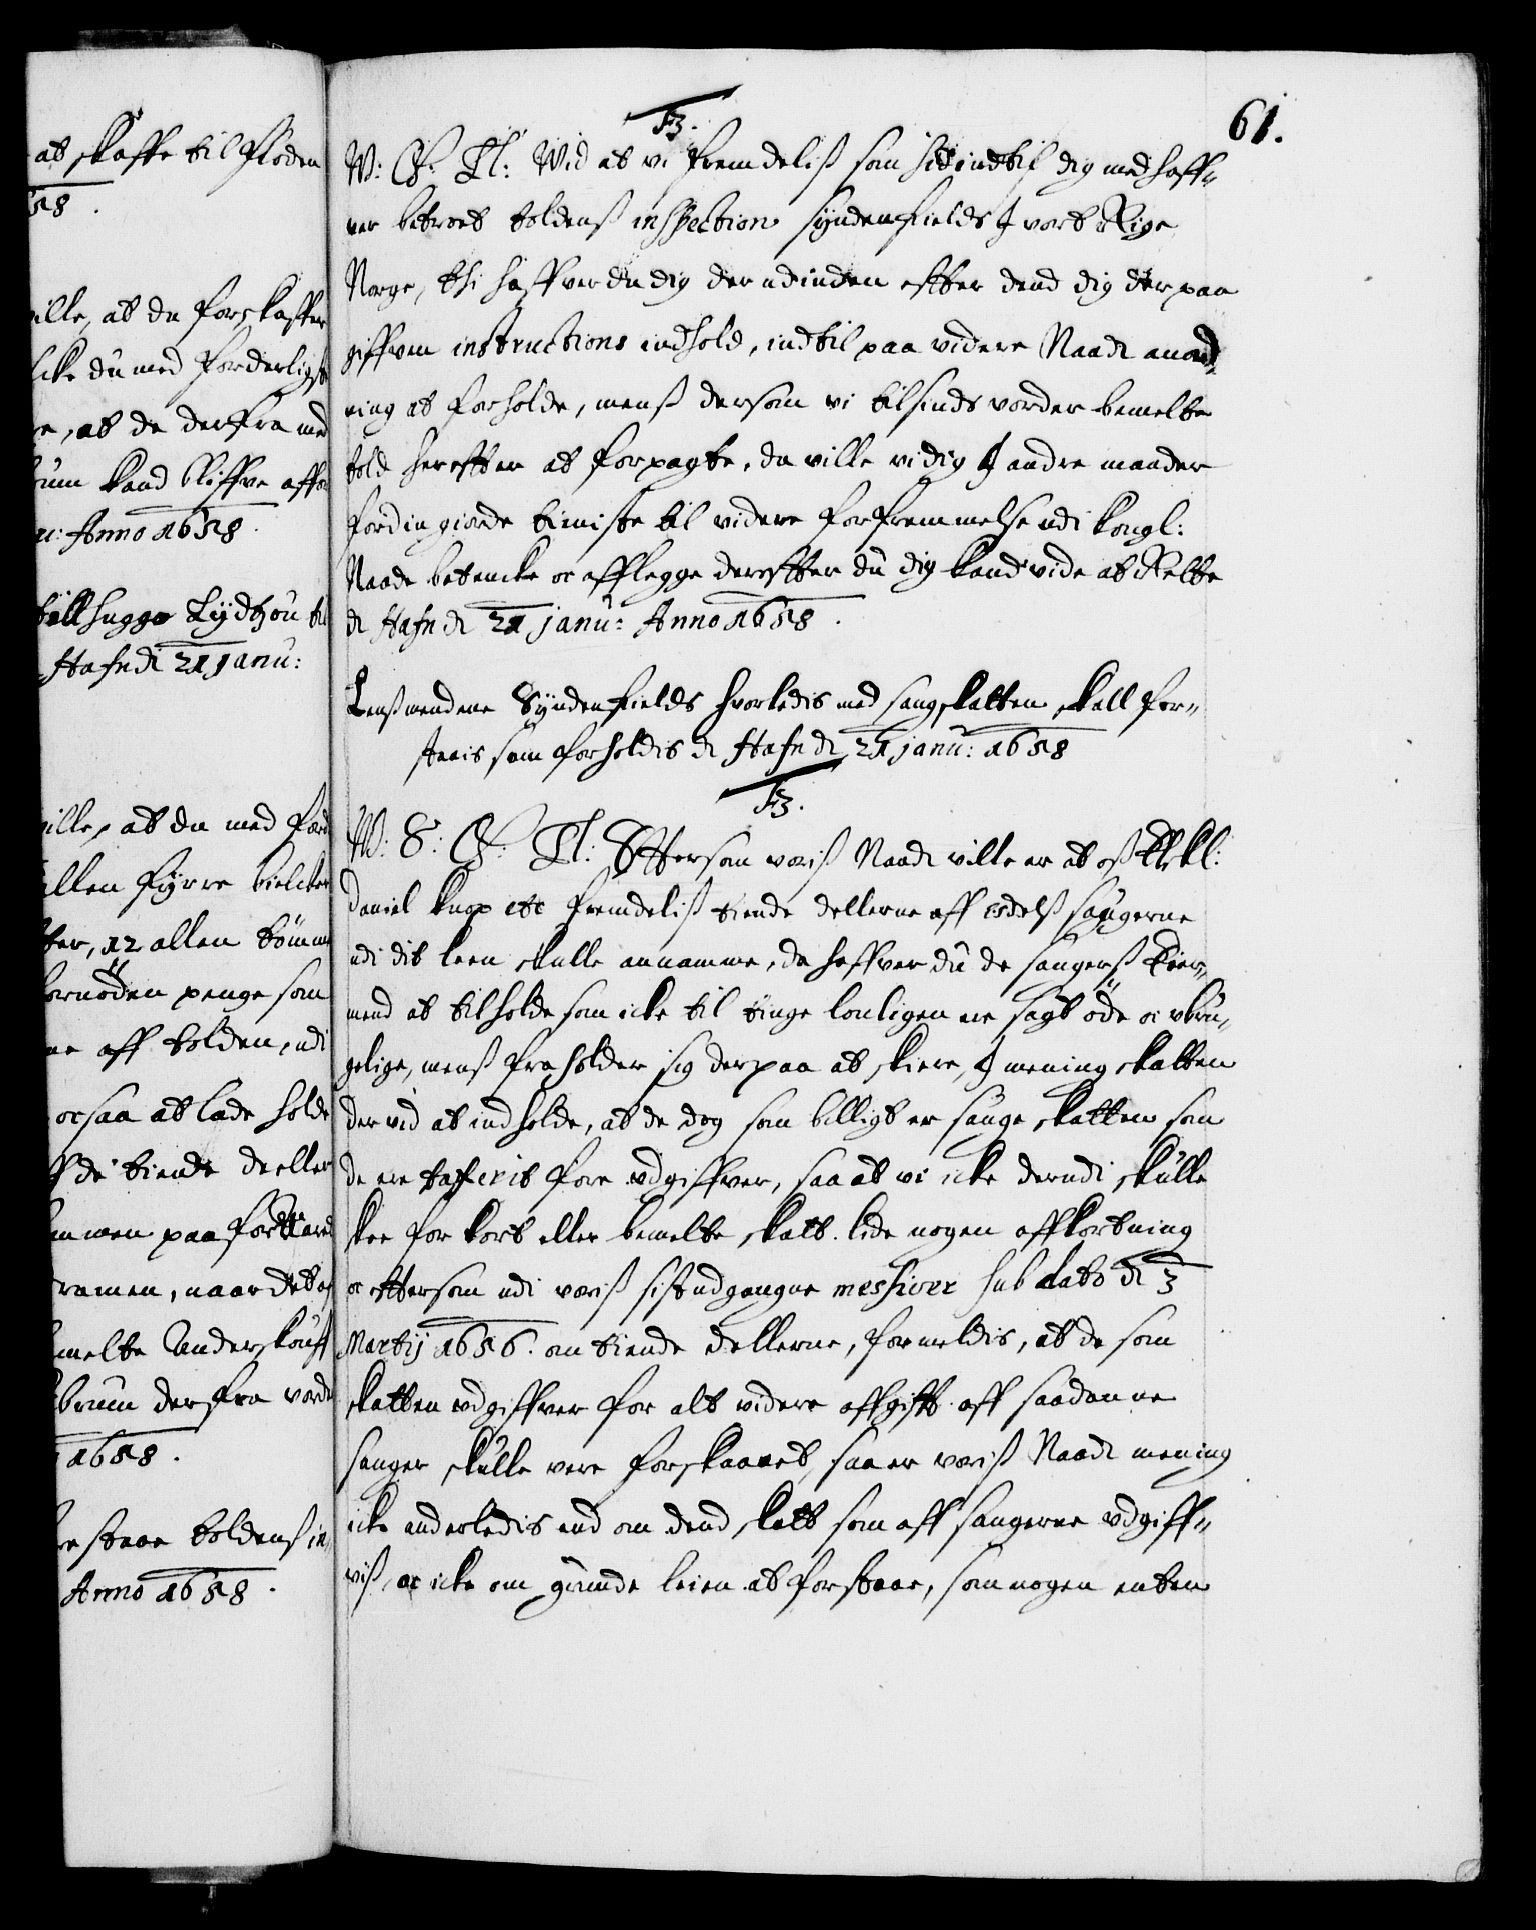 at skaffe til Floden
58.
ville, at du forskaffer
icke du med forderligst
re, at de derfra med
rum kand bliffve affør
u: Anno 1658.
till hugge Lydtzou til
Hafn di 21 Janu:
ville, at du med ford
allen fyrre bielcker
ter, 12 allen tømmer
fornøden penge som
ne aff tolden, udi
ocsaa at lade holde
ff de tiende deeller
mmen paa forklared
ramen, naar det os
melte Underskouff
brum derfra vorde
1658.
restaae toldens in,
Anno 1658.
61.
F3.
W: G: T: Wid at vi fremdeliß som hid indtil dig med haff„
ver betroet toldenß inspection Syndenfields J vort Rige
Norge, thi haffver du dig der udinden effter dend dig der paa
giffven instructions indhold, indtil paa videre Naadi anord„
ning at forholde, menß dersom vi tilsinds vorder bemelte
told hereffter at forpagte, da ville vi dig J andre maader
for din giorde tieniste til videre forfremmelse udi kongl:
Naade betencke oc afflegge dereffter du dig kand vide at Rette
di Hafn di 21 Janu: Anno 1658.
Lenßmendene Syndenfields hvorledis med saugskatten skall for„
staais som forholdis di Hafn di 21 Janu: 1658
F3.
W: S: G: T: Effter som voriß Naadi ville er at oß Elskl:
Daniel Knop etc fremdeliß tiende dellerne aff Eedelß saugerne
udi dit leen skulle annamme, da haffver du de saugerß Eier„
mend at tilholde som icke til tinge louligen ere sagt øde oc ubru„
gelige, menß fra holder sig derpaa at skiere, J mening skatten
der ved at indholde, at de dog som billigt er sauge skatten som
de ere taxerit fore udgiffver, saa at vi icke derudi skulle
skee for kort eller bemelte skatt lide nogen affkortning
oc effter som udi voriß sist udgangne missiver sub dato di 3
Martij 1656. om tiende dellerne, formeldis, at de som
skatten udgiffver for alt videre affgifft aff saadanne
sauger skulle vere forskaanet, saa er voriß Naadi mening
icke anderledis end om dend skatt som aff saugerne udgiff„
viß, oc icke om grunde leien at forstaae, som nogen enten